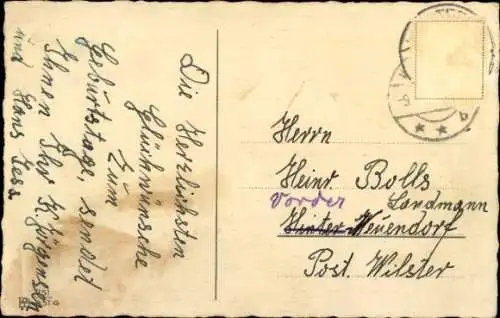 Die Herzlichsten
Glückwünsche
zum
Geburtstage, sendet
Ihnen Ihr H. Jürgensen
und Hans Jess
Herrn
Heinr. Bolls
Landmann
Vorder
Hinter Neuendorf
Post. Wilster